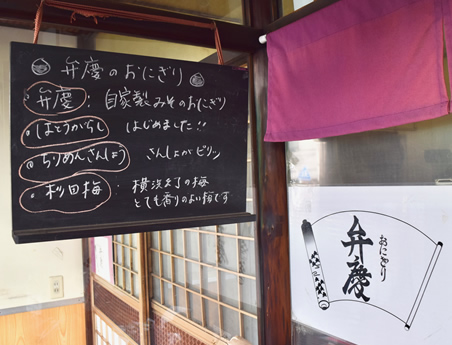 弁慶のおにぎり
弁慶：自家製みそのおにぎり
はとうがらし はじめました!!
ちりめんさんしょう さんしょがピリッ
杉田梅：横浜の梅
とても香りのよい梅です
おにぎり
弁慶